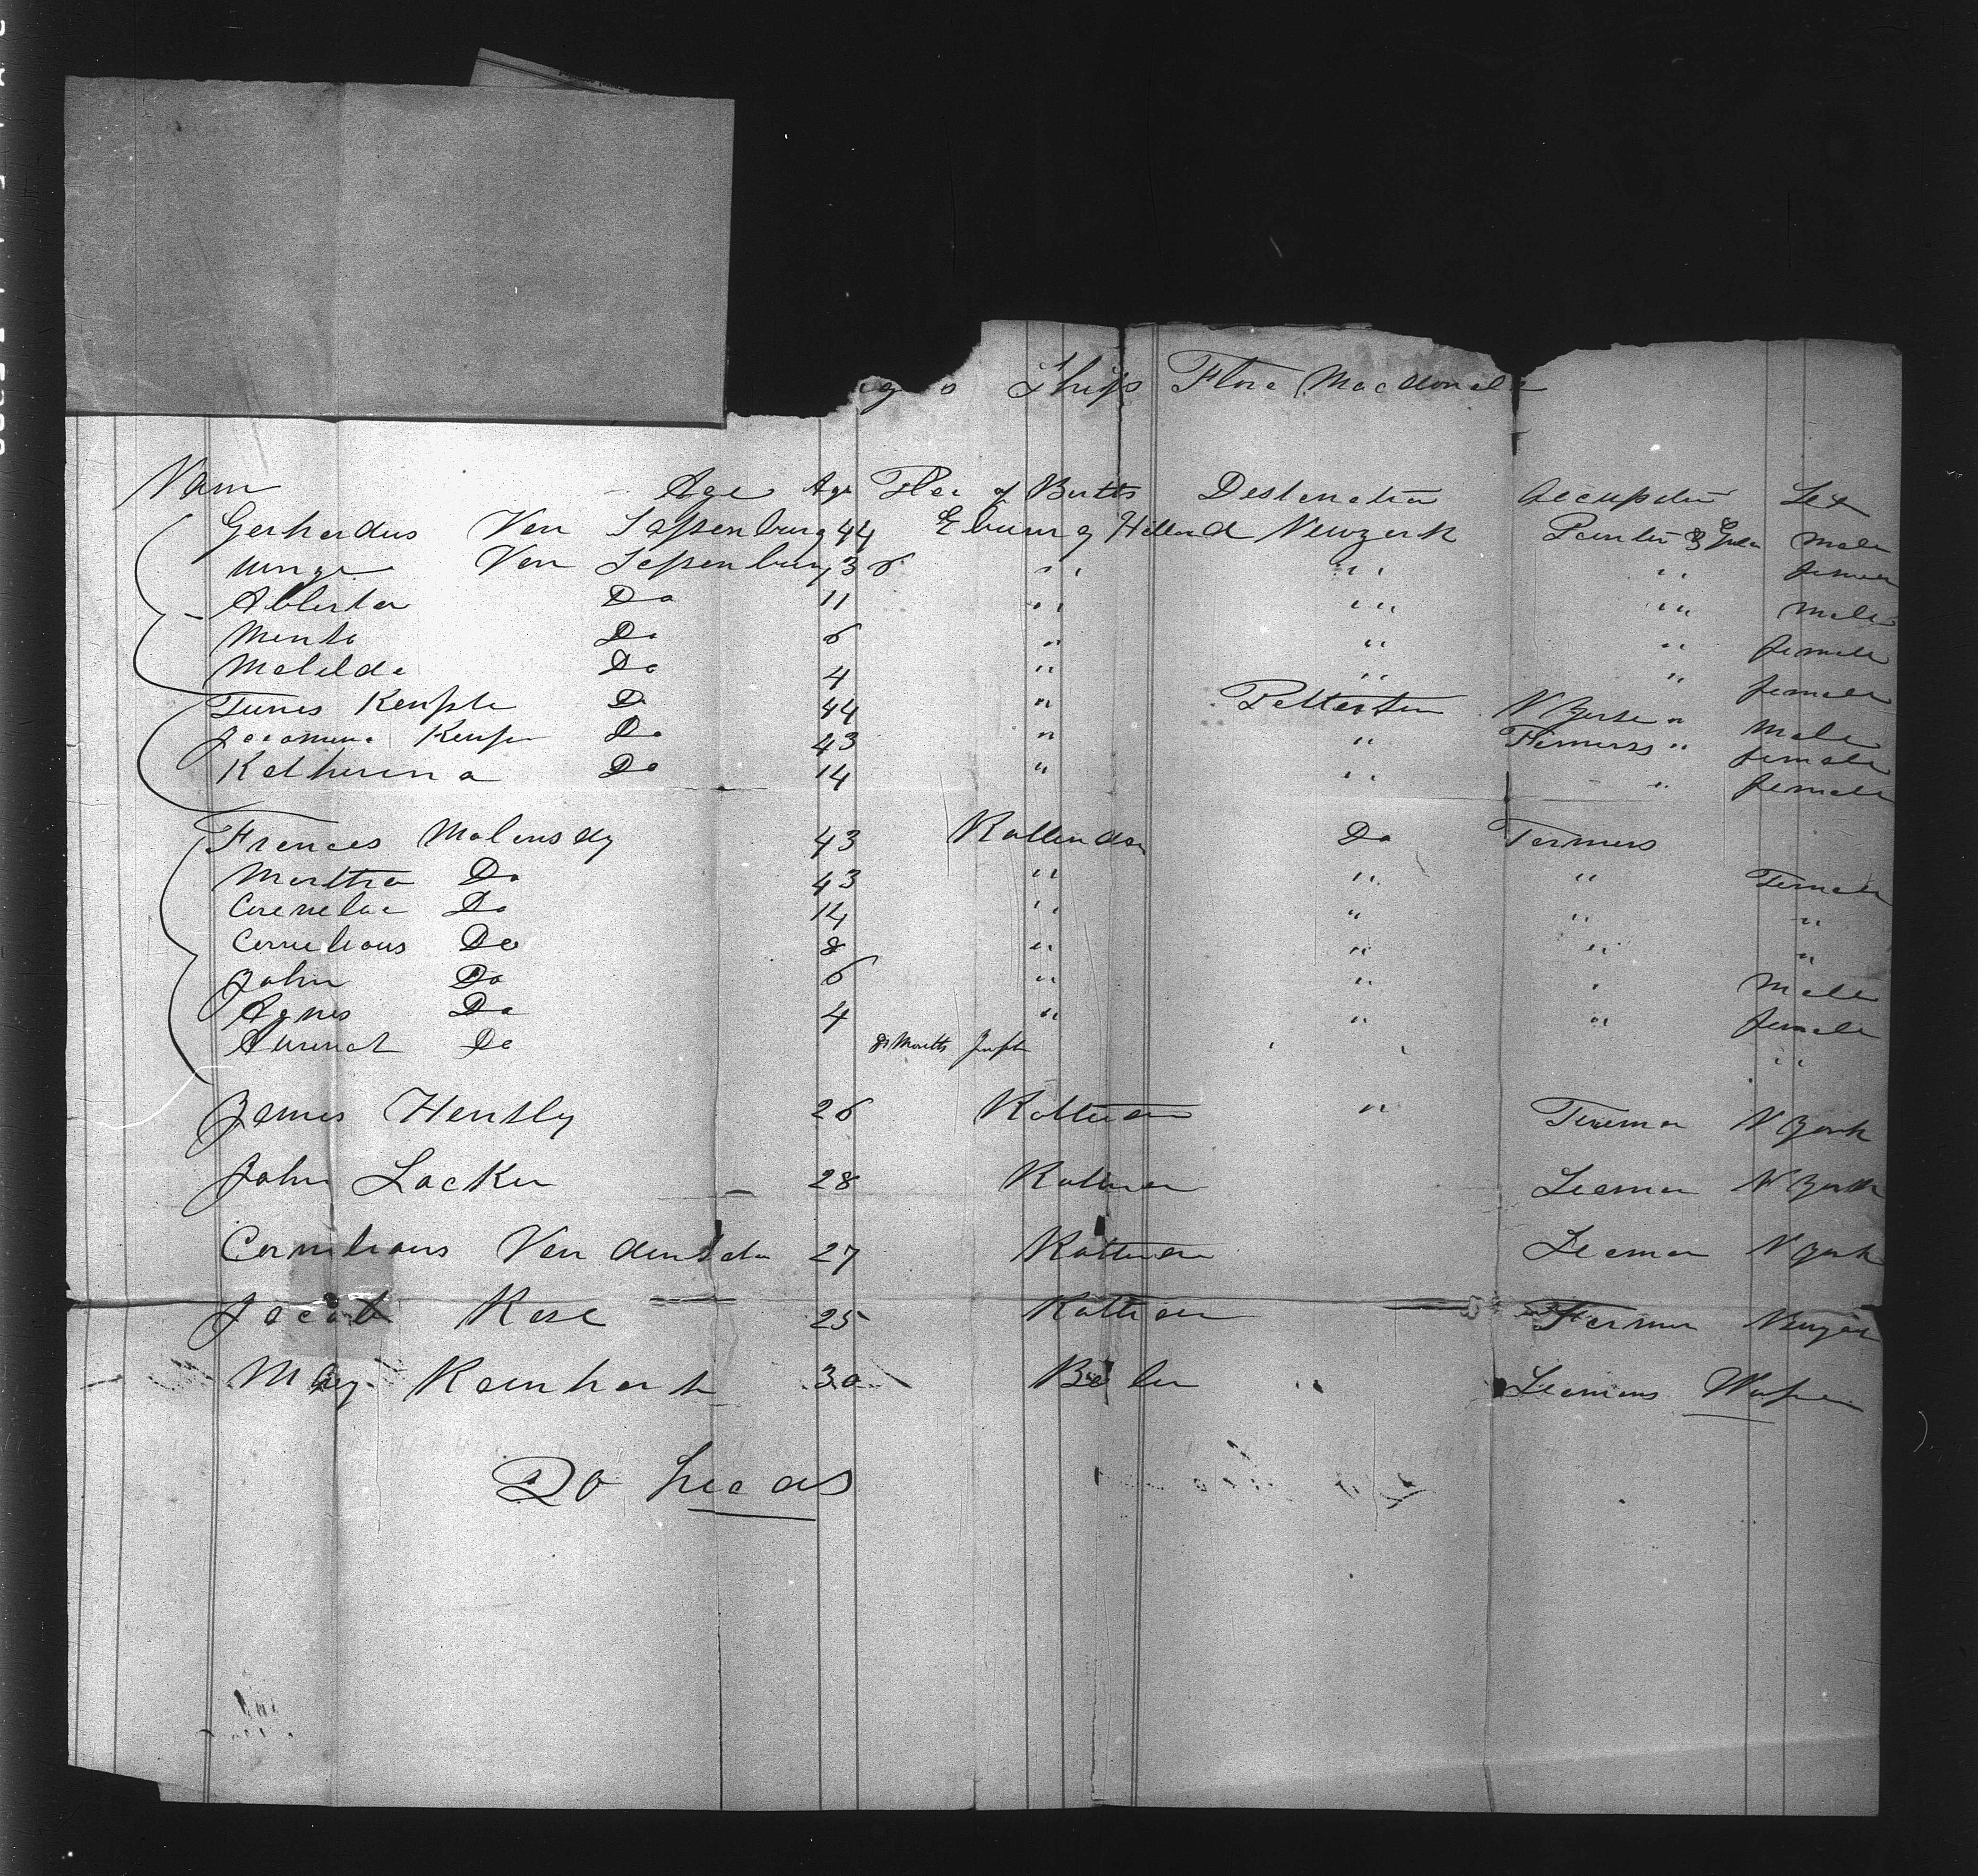 Ships Flora Macdonald
Name Age Age Plac of Births Destenation Occupation Sex
Gerhardus Van Lessenburg 44 Eburug Holland Newyork Painter & male
Van Lessenburg 36 " " " female
Alberta Do 11 " " " male
Menta Do 6 " " " female
Matilda Do 4 " " " female
Tunes Kempte Do 44 " Petterston N Yerse " male
Jacomina Kempe Do 43 " " Farmers " female
Katherina Do 14 " " " female
Frances Molensdy 43 Rotterdam Do Farmers
Martha Do 43 " " " Female
Cornelae Do 14 " " " "
Cornelious Do 8 " " " "
John Do 6 " " " Male
Agnes Do 4 " " " female
Do 8 Months " "
James Hensly 26 Rotterdam " Fireman N York
John Locker 28 Rotterdam Seaman N York
Cornelious Van 27 Rotterdam Seaman N York
Jacob Rose 25 Rotterdam Farmer Newyork
May Reinhart 30 Seamans
20 heads